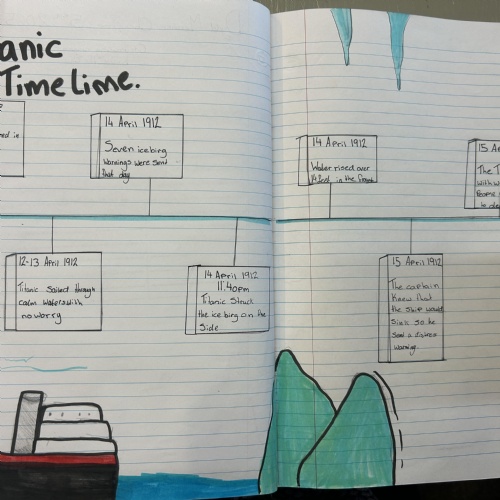 anic
Timelime.
14 April 1912
Seven icebirg
warnings were send
that day
12-13 April 1912
Titanic Sailed through
calm waters with
no worry
14 April 1912
11:40pm
Titanic Struck
the ice birg on the
Side
14 April 1912
Water rised over
in the front
15 April 1912
The captain
Knew that
the ship would
Sink So he
Send a
warning.
15 Ap
The T
with w
People
to de